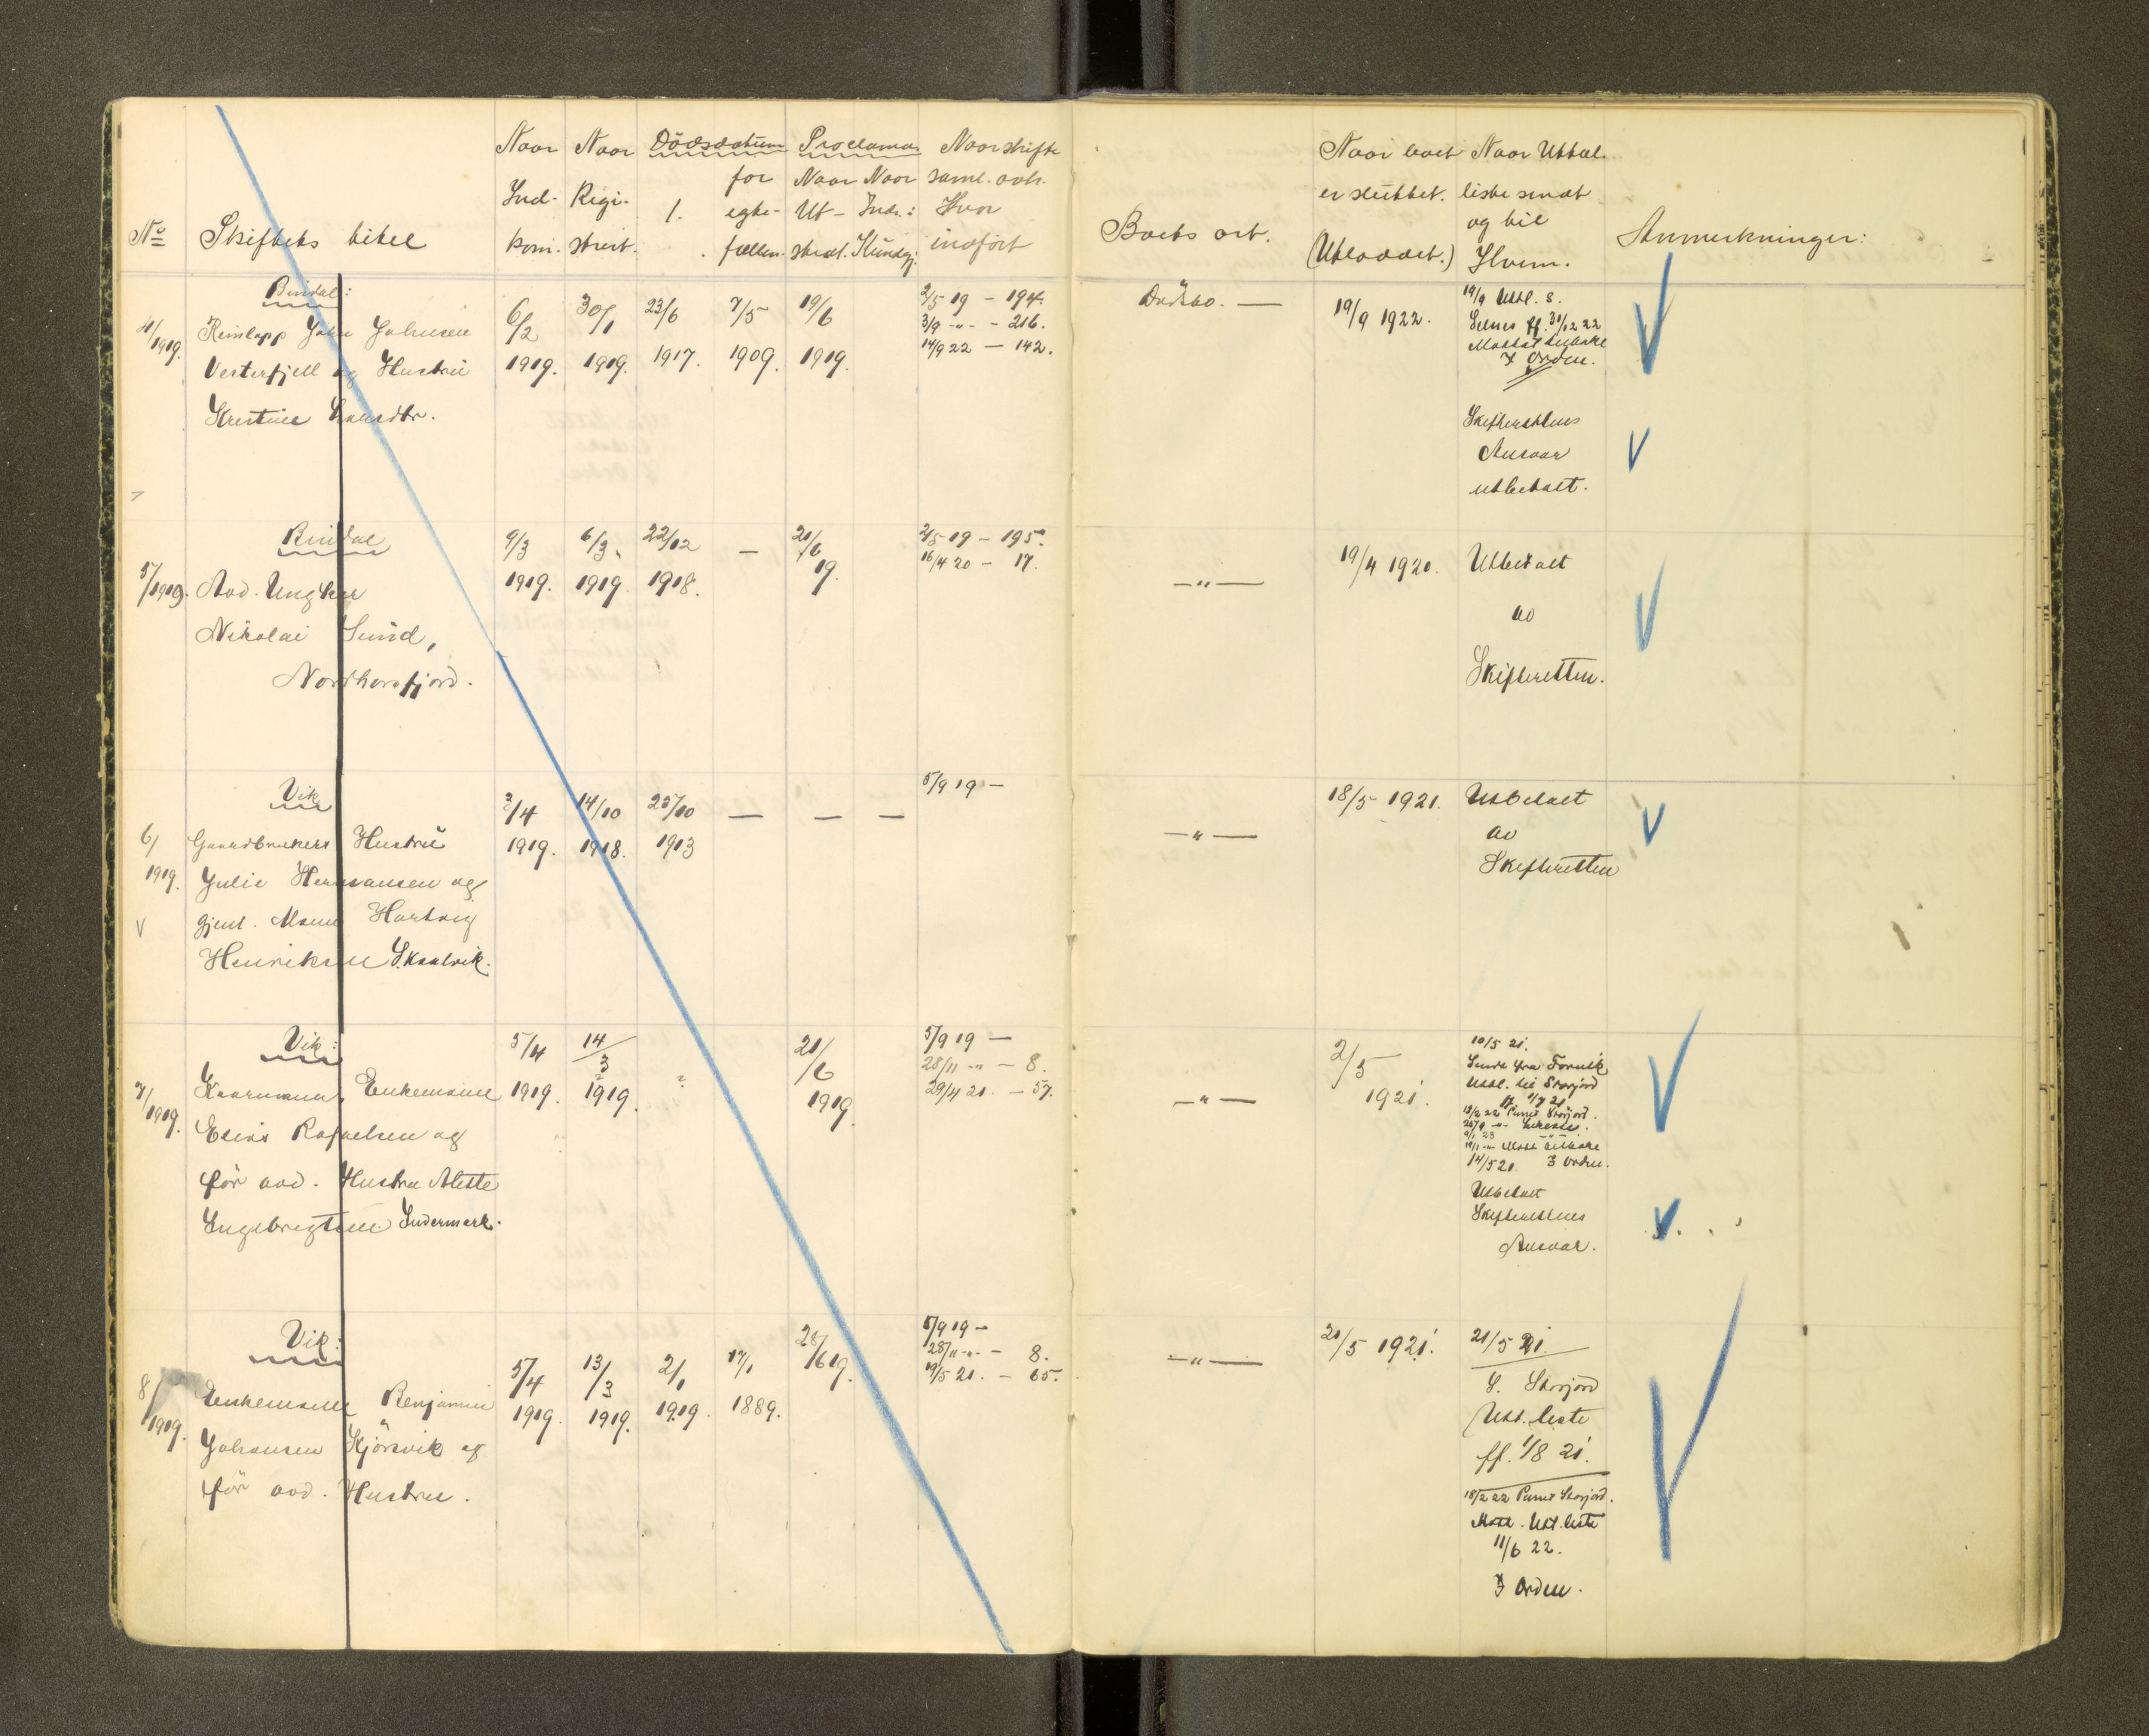 No
Skiftets titel
Naar
Ind-
kom.
Naar
Regi-
strert.
Dödsdatum
1.
for
egte-
fællen.
Proclama
Naar Naar
Ut- Indr.:
stedt. Kundgj.
Naar skifte
saml. avh.
Hvor
indført
Boets art.
Naar boet
er sluttet.
(Utloddet.)
Naar Uttal.
liste sendt
og til
Hvem.
Anmerkninger:
4/1919.
Bindal:
Reinlapp John Johnsen
Vesterfjell og Hustru
Kristine
6/2
1919.
30/1
1919.
23/6
1917.
7/5
1909.
19/6
1919.
2/5 19 - 194.
3/9 -"- - 216.
14/9 22 - 142.
Dødsbo. —
19/9 1922.
19/9 Utbl. s.
ff. 31/12 22
I Orden.
Skifterettens
Ansvar
utbetalt.
5/1919.
Bindal
Avd. Ungkar
Nikolai Sund,
Nordhorsfjord.
9/3
1919.
6/3
1919.
22/12
1918.
—
21/6
19.
2/5 19 - 195.
16/4 20 - 17.
—"—
19/4 1920.
Utbetalt
av
Skifteretten.
6/
1919.
Vik
Gaardbrukers Hustru
Julie Hermansen og
gjenl. Mand Hartvig
Henriksen Skaalvik.
3/4
1919.
14/10
1918.
25/10
1913
— — —
5/9 19 -
—"—
18/5 1921.
Utbetalt
av
Skifteretten
7/1919.
Vik:
Kaarmand, Enkemand
Elias Rafaelsen og
før avd. Hustru Alette
Ingebrigtsen Indermark.
5/4
1919.
14/3
1919.
21/6
1919.
5/9 19 -
28/11 -"- - 8.
29/4 21. - 57.
—"—
2/5
1921.
10/5 21.
Utbl. til Storjord
18/2 22 Purret Storjord.
14/5 21 I Orden.
Utbetalt
Skifterettens
Ansvar.
8/1919.
Vik:
Enkemand Benjamin
Johansen Kjørsvik og
før avd. Hustru.
5/4
1919.
13/3
1919.
2/1
1919.
17/1
1889.
28/6 19.
5/9 19 -
28/11 -"- - 8.
19/5 21. - 65.
—"—
21/5 1921.
21/5 21.
L. Storjord
Utd. liste
ff. 1/8 21.
18/2 22 Purret Storjord.
Mott. Utd. liste
11/6 22.
I Orden.